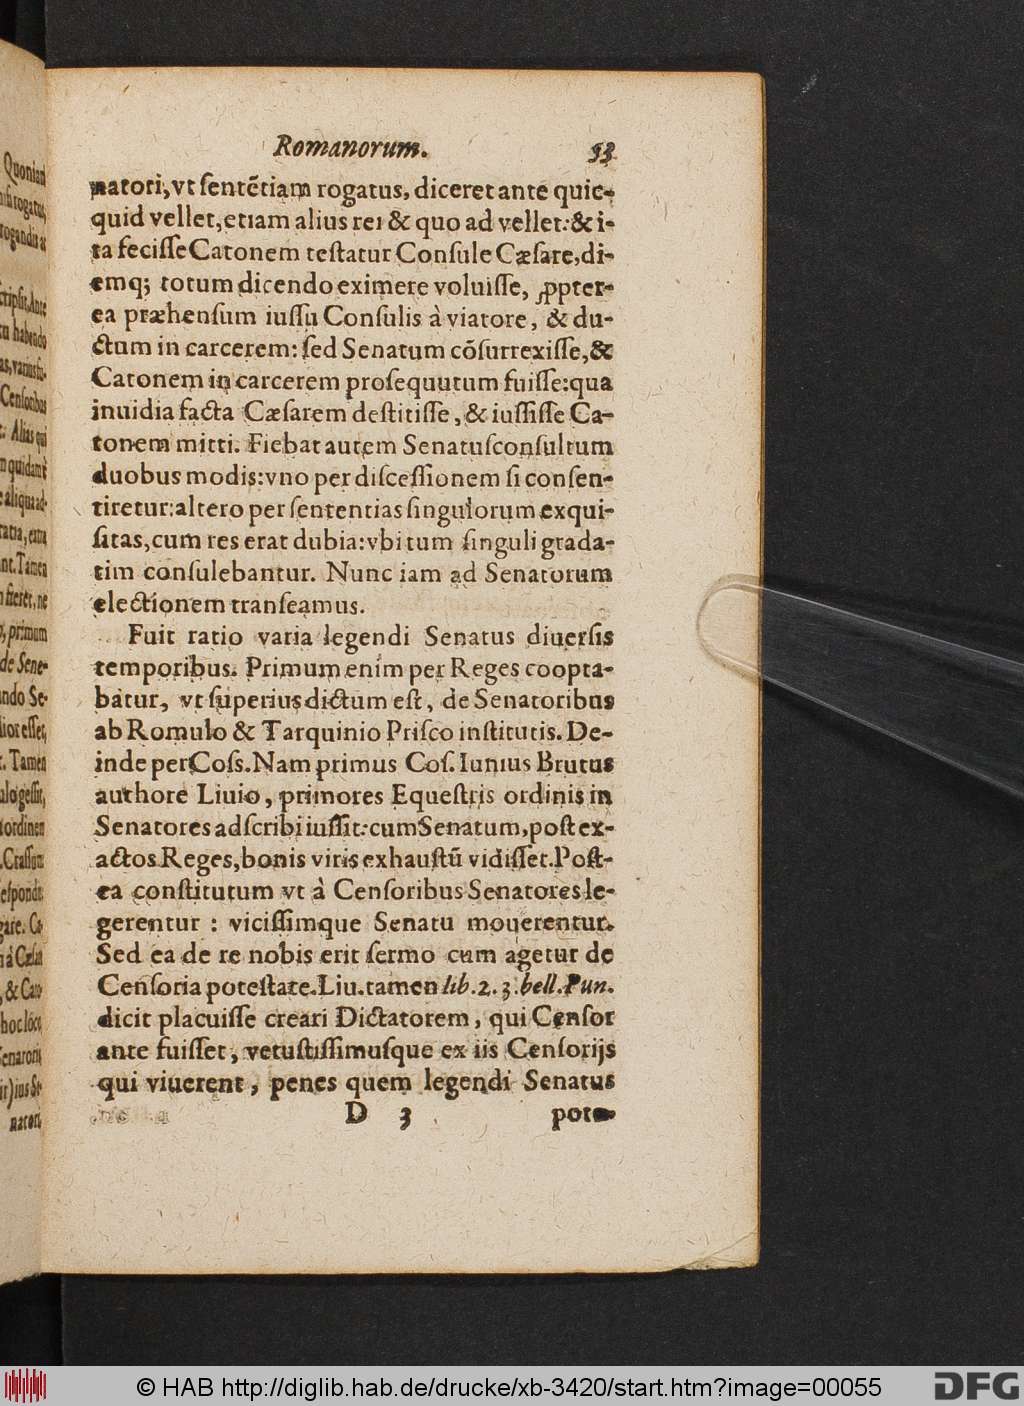 Romanorum. 53
natori, vt sentētiam rogatus, diceret ante quic-
quid vellet, etiam alius rei & quo ad vellet: & i-
ta fecisse Catonem testatur Consule Cæsare, di-
emq; totum dicendo eximere voluisse, ꝓpter-
ea præhensum iussu Consulis à viatore, & du-
ctum in carcerem: sed Senatum cōsurrexisse, &
Catonem in carcerem prosequutum fuisse: qua
inuidia facta Cæsarem destitisse, & iussisse Ca-
tonem mitti. Fiebat autem Senatusconsultum
duobus modis: vno per discessionem si consen-
tiretur: altero per sententias singulorum exqui-
sitas, cum res erat dubia: vbi tum singuli grada-
tim consulebantur. Nunc iam ad Senatorum
electionem transeamus.
Fuit ratio varia legendi Senatus diuersis
temporibus. Primum enim per Reges coopta-
bātur, vt superius dictum est, de Senatoribus
ab Romulo & Tarquinio Prisco institutis. De-
inde per Coss. Nam primus Cos. Iunius Brutus
authore Liuio, primores Equestris ordinis in
Senatores adscribi iussit: cum Senatum, post ex-
actos Reges, bonis viris exhaustū vidisset. Post-
ea constitutum vt à Censoribus Senatores le-
gerentur: vicissimque Senatu mouerentur.
Sed ea de re nobis erit sermo cum agetur de
Censoria potestate. Liu. tamen lib. 2. 3. bell. Pun.
dicit placuisse creari Dictatorem, qui Censor
ante fuisset, vetustissimusque ex iis Censorijs
qui viuerent, penes quem legendi Senatus
D 3 pote-
Quoniam
rogatus,
rogandis
Ante
habendo
Censoribus
Alias qui
quidam
aliqua ad-
extra
Tamen
fieret, ne
primum
de Sene-
Se-
esset,
Tamen
gessit,
ordinem
Crassum
à Cæsar
& Cato
hoc loco
Senatoris
ius Se-
natori,
© HAB http://diglib.hab.de/drucke/xb-3420/start.htm?image=00055
DFG